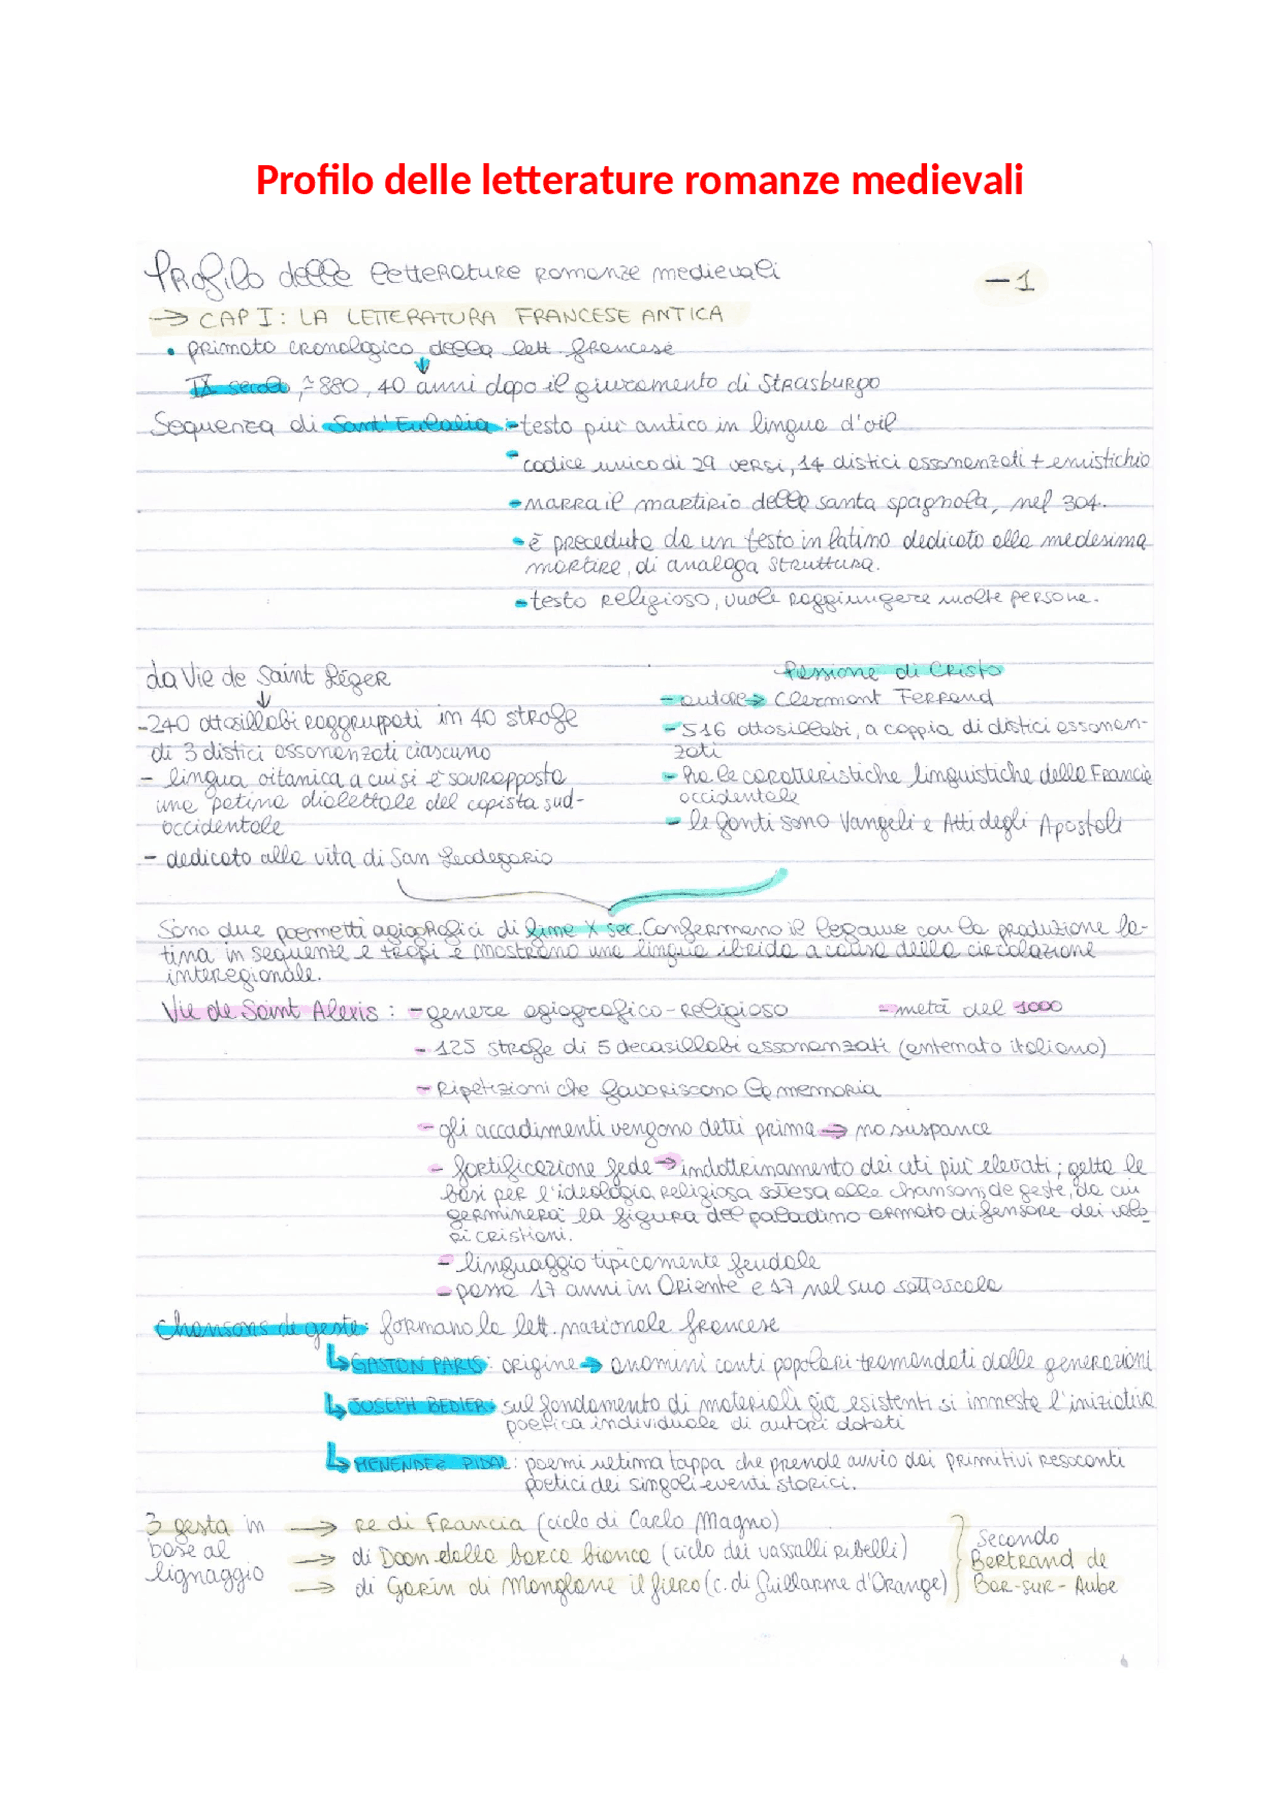 Profilo delle letterature romanze medievali
Profilo delle letterature romanze medievali
—1
→ CAP I: LA LETTERATURA FRANCESE ANTICA
• primato cronologico della lett. francese
↓
IX secolo, ≃ 880, 40 anni dopo il giuramento di Strasburgo
Sequenza di Sant'Eulalia: - testo più antico in lingua d'oil
- codice unico di 29 versi, 14 distici assonanzati + emistichio
- narra il martirio della santa spagnola, nel 304.
- è preceduta da un testo in latino dedicato alla medesima
martire, di analoga struttura.
- testo religioso, vuole raggiungere molte persone.
La Vie de Saint Léger
↓
- 240 ottosillabi raggruppati in 40 strofe
di 3 distici assonanzati ciascuno
- lingua oitanica a cui si è sovrapposta
una patina dialettale del copista sud-
occidentale
- dedicato alla vita di San Leodegario
Passione di Cristo
- autore → Clermont Ferrand
- 516 ottosillabi, a coppia di distici assonan-
zati
- ha le caratteristiche linguistiche della Francia
occidentale
- le fonti sono Vangeli e Atti degli Apostoli
Sono due poemetti agiografici di fine X sec. Confermano il legame con la produzione la-
tina in sequenze e tropi e mostrano una lingua ibrida a causa della circolazione
interregionale.
Vie de Saint Alexis: - genere agiografico-religioso - metà del 1000
- 125 strofe di 5 decasillabi assonanzati (antenato italiano)
- Ripetizioni che favoriscono la memoria
- gli accadimenti vengono detti prima → no suspance
- fortificazione fede → indottrinamento dei ceti più elevati; getta le
basi per l'ideologia religiosa sottesa alle chansons de geste, da cui
germinerà la figura del paladino armato difensore dei valo-
ri cristiani.
- linguaggio tipicamente feudale
- passa 17 anni in Oriente e 17 nel suo sottoscala
Chansons de geste: formano la lett. nazionale francese
↳ GASTON PARIS: origine → anonimi canti popolari tramandati dalle generazioni
↳ JOSEPH BEDIER: sul fondamento di materiali già esistenti si innesta l'iniziativa
poetica individuale di autori dotati
↳ MENENDEZ PIDAL: poemi ultima tappa che prende avvio dai primitivi resoconti
poetici dei singoli eventi storici.
3 gesta in → re di Francia (ciclo di Carlo Magno)
base al → di Doon dalla barca bianca (ciclo dei vassalli ribelli)
lignaggio → di Garin di Monglane il fiero (c. di Guillarme d'Orange)
Secondo
Bertrand de
Bar-sur-Aube